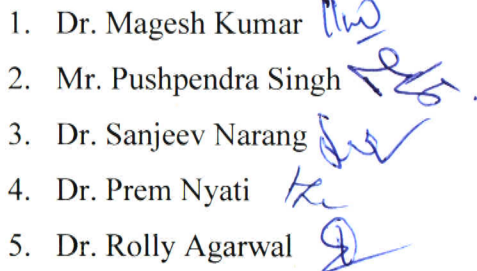 1. Dr. Magesh Kumar
2. Mr. Pushpendra Singh
3. Dr. Sanjeev Narang
4. Dr. Prem Nyati
5. Dr. Rolly Agarwal